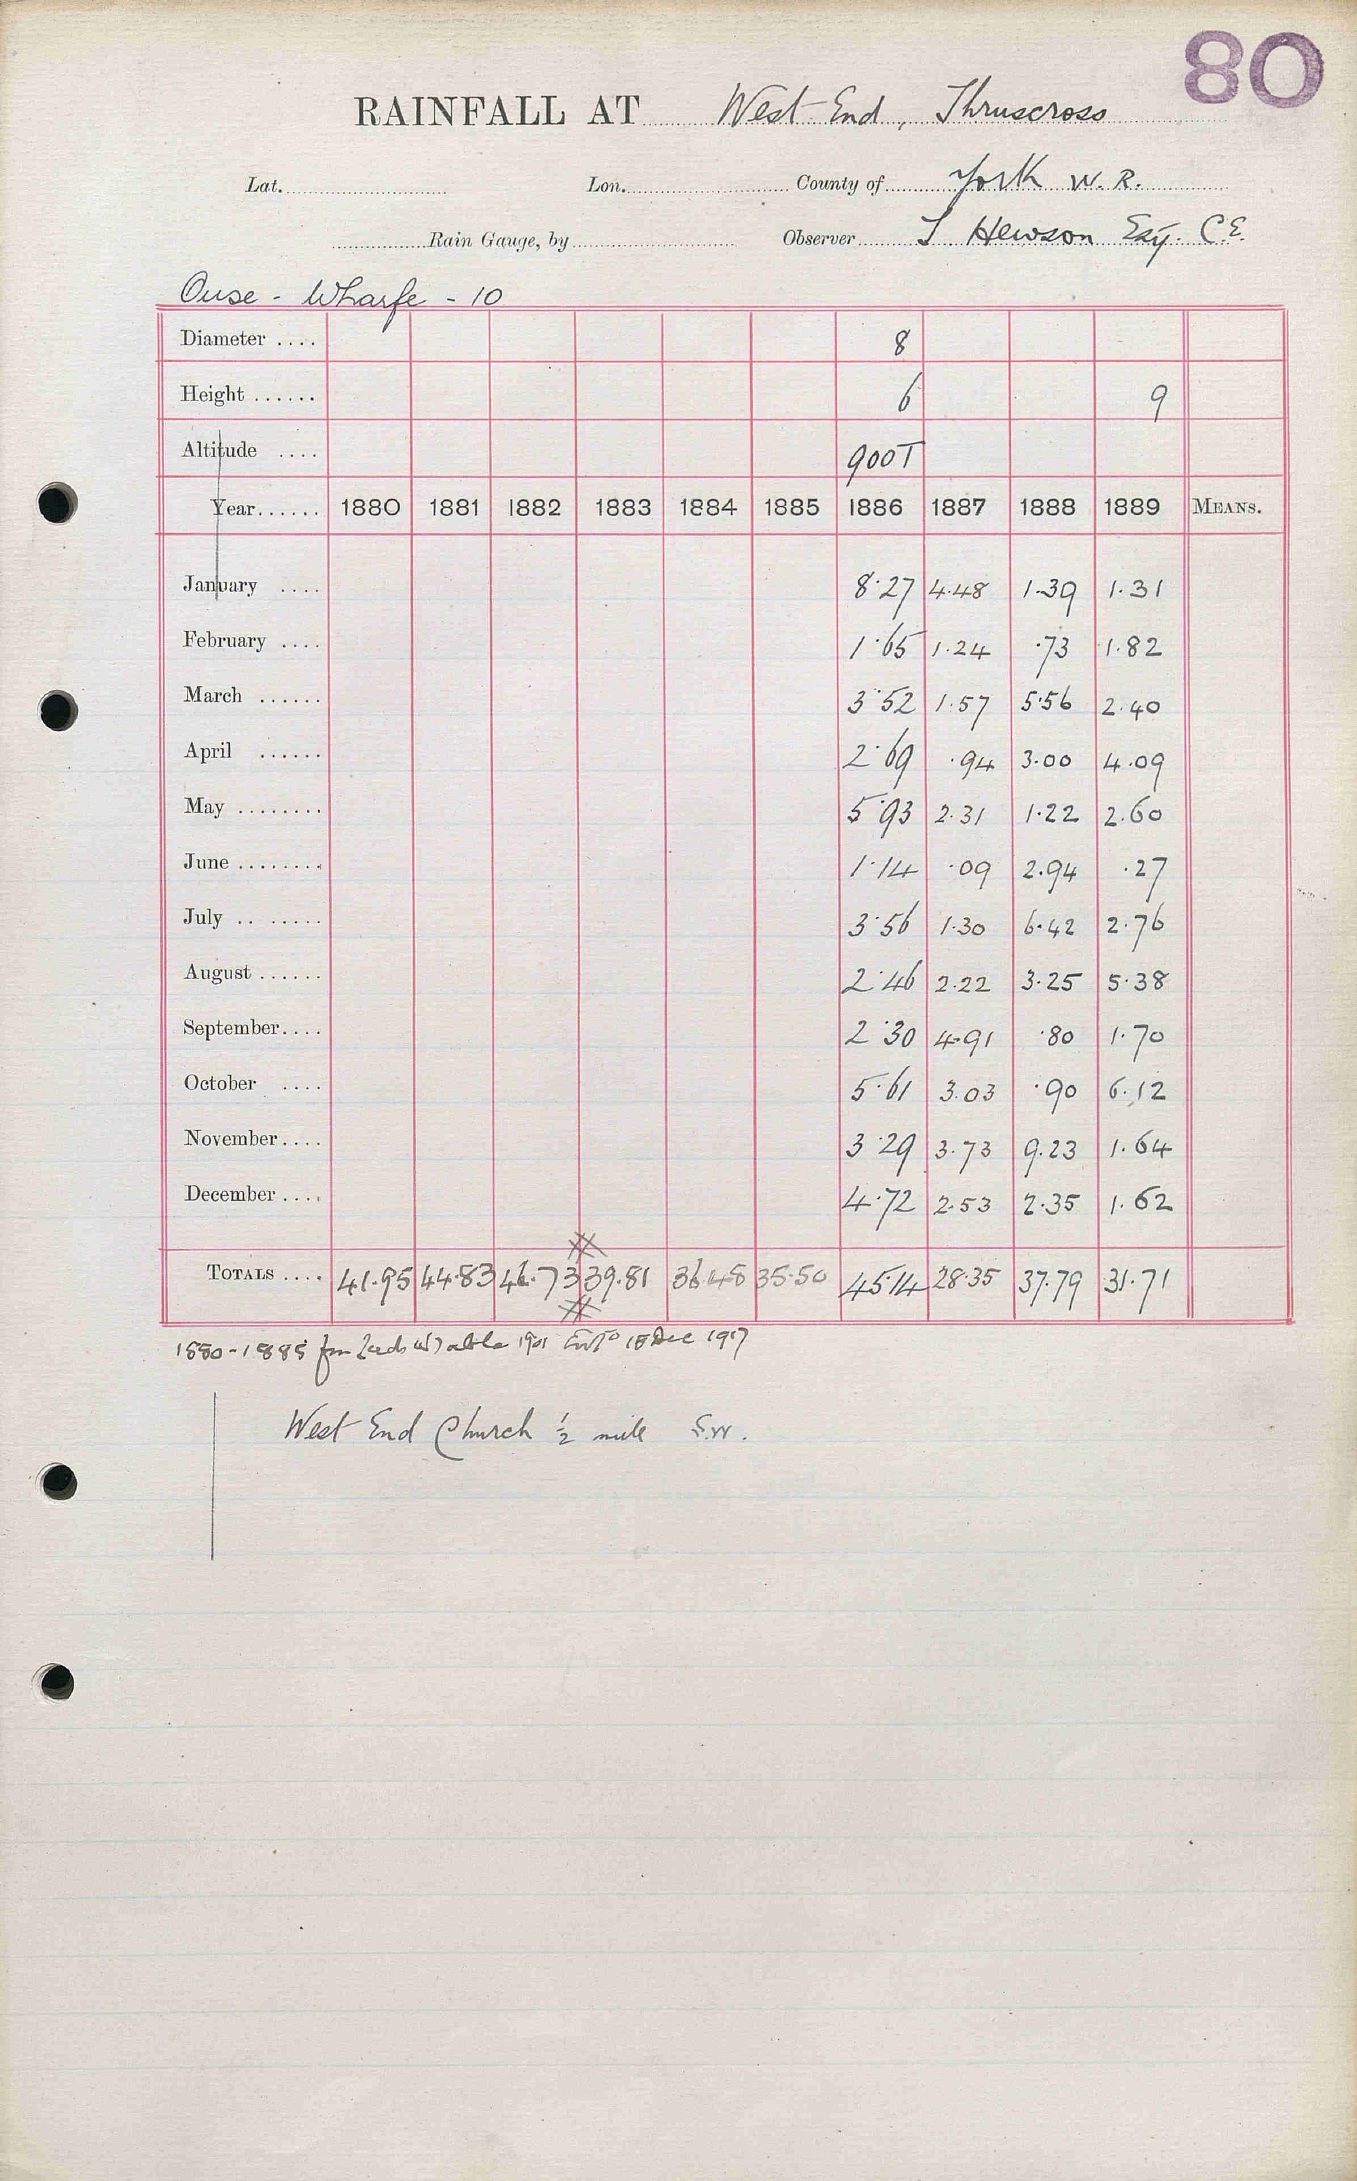 80
RAINFALL AT West End, Thruscross
Lat. Lon. County of York W.R.
Rain Gauge, by Observer T Hewson Esq. C.E.
Ouse - Wharfe - 10
Diameter .... 8
Height ...... 6 9
Altitude .... 900T
Year...... 1880 1881 1882 1883 1884 1885 1886 1887 1888 1889 MEANS.
January .... 8.27 4.48 1.39 1.31
February .... 1.65 1.24 .73 1.82
March ...... 3.52 1.57 5.56 2.40
April ...... 2.69 .94 3.00 4.09
May ........ 5.93 2.31 1.22 2.60
June ........ 1.14 .09 2.94 .27
July .. ..... 3.56 1.30 6.42 2.76
August ...... 2.46 2.22 3.25 5.38
September.... 2.30 4.91 .80 1.70
October .... 5.61 3.03 .90 6.12
November.... 3.29 3.73 9.23 1.64
December .... 4.72 2.53 2.35 1.62
TOTALS .... 41.95 44.83 46.73 39.81 36.48 35.50 45.14 28.35 37.79 31.71
1880-1885 from Leeds 1901 18 Dec 1917
West End Church ½ mile S.W.